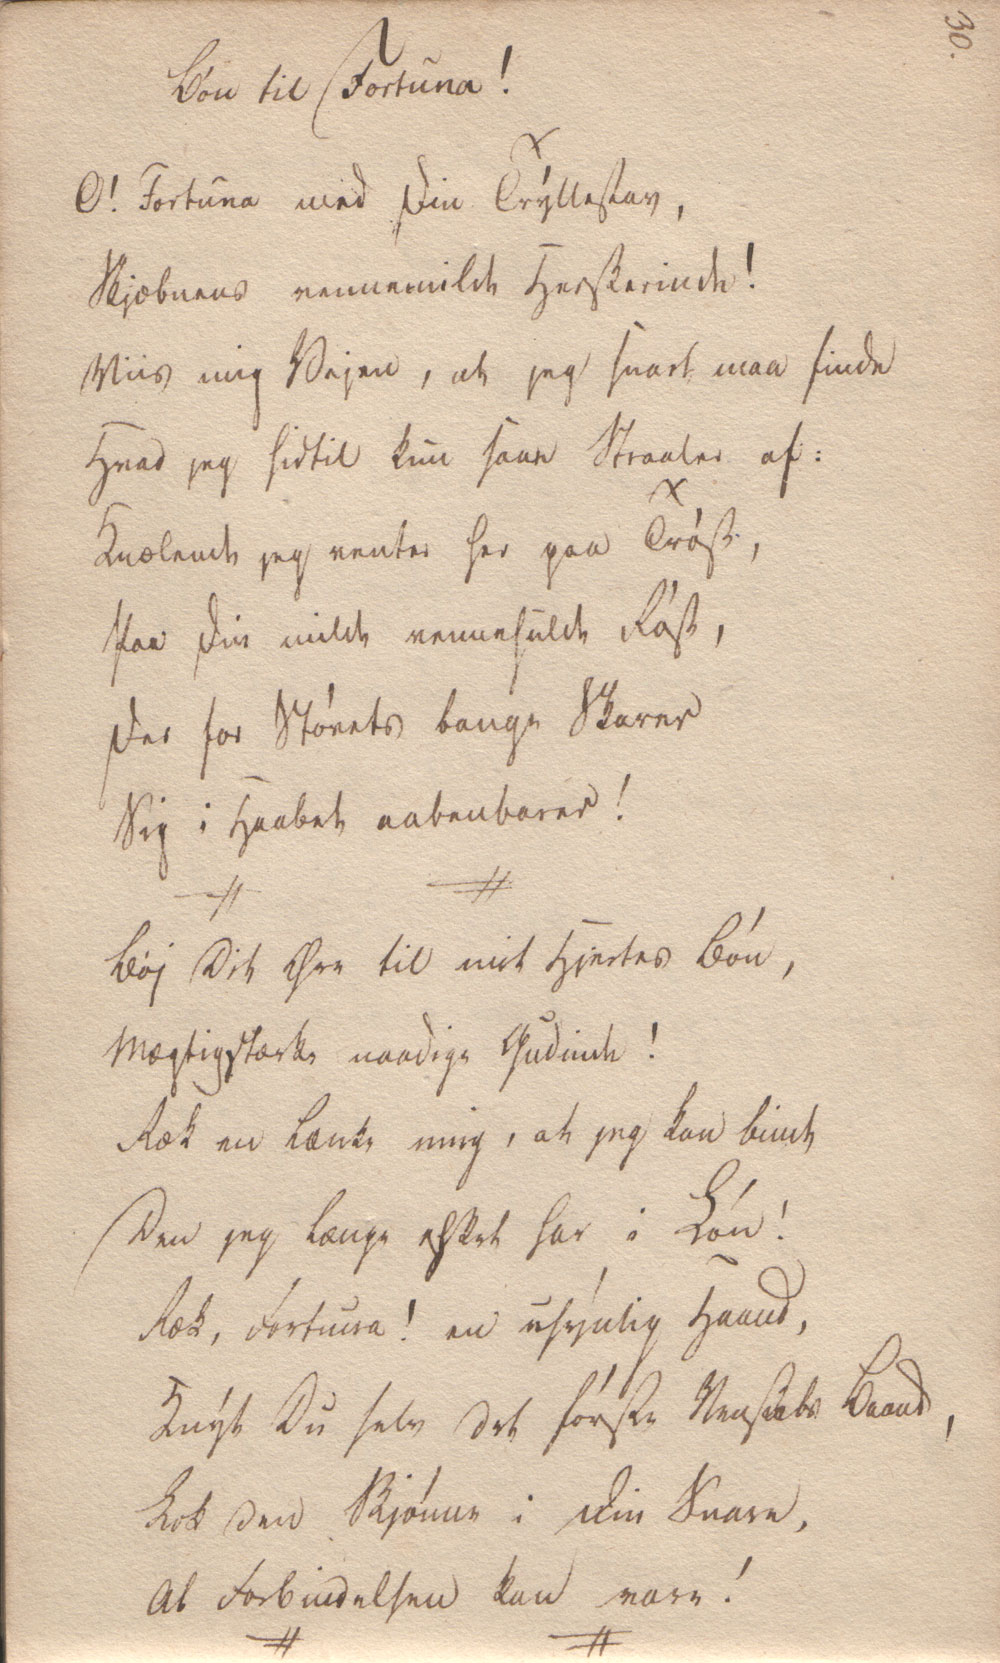 30.
Bøn til Fortuna!
O! Fortuna med Din Tryllestav,
Skjæbnens vennemilde Herskerinde!
Viis mig Vejen, at jeg snart maa finde
Hvad jeg hidtil kun saae Straaler af:
Knælende jeg venter her paa Trøst,
Paa Din milde vennehulde Røst,
Der for Støvets bange Skarer
Sig i Haabet aabenbarer!
Bøj Dit Øre til mit Hjertes Bøn,
Mægtigstærke naadige Gudinde!
Ræk en Lænke mig, at jeg kan binde
Den jeg længe elsket har i Løn!
Ræk, Fortuna! en usynlig Haand,
Knyt Du selv det første Venskabs Baand,
Lok den Skjønne i Din Snare,
At Forbindelsen kan vare!